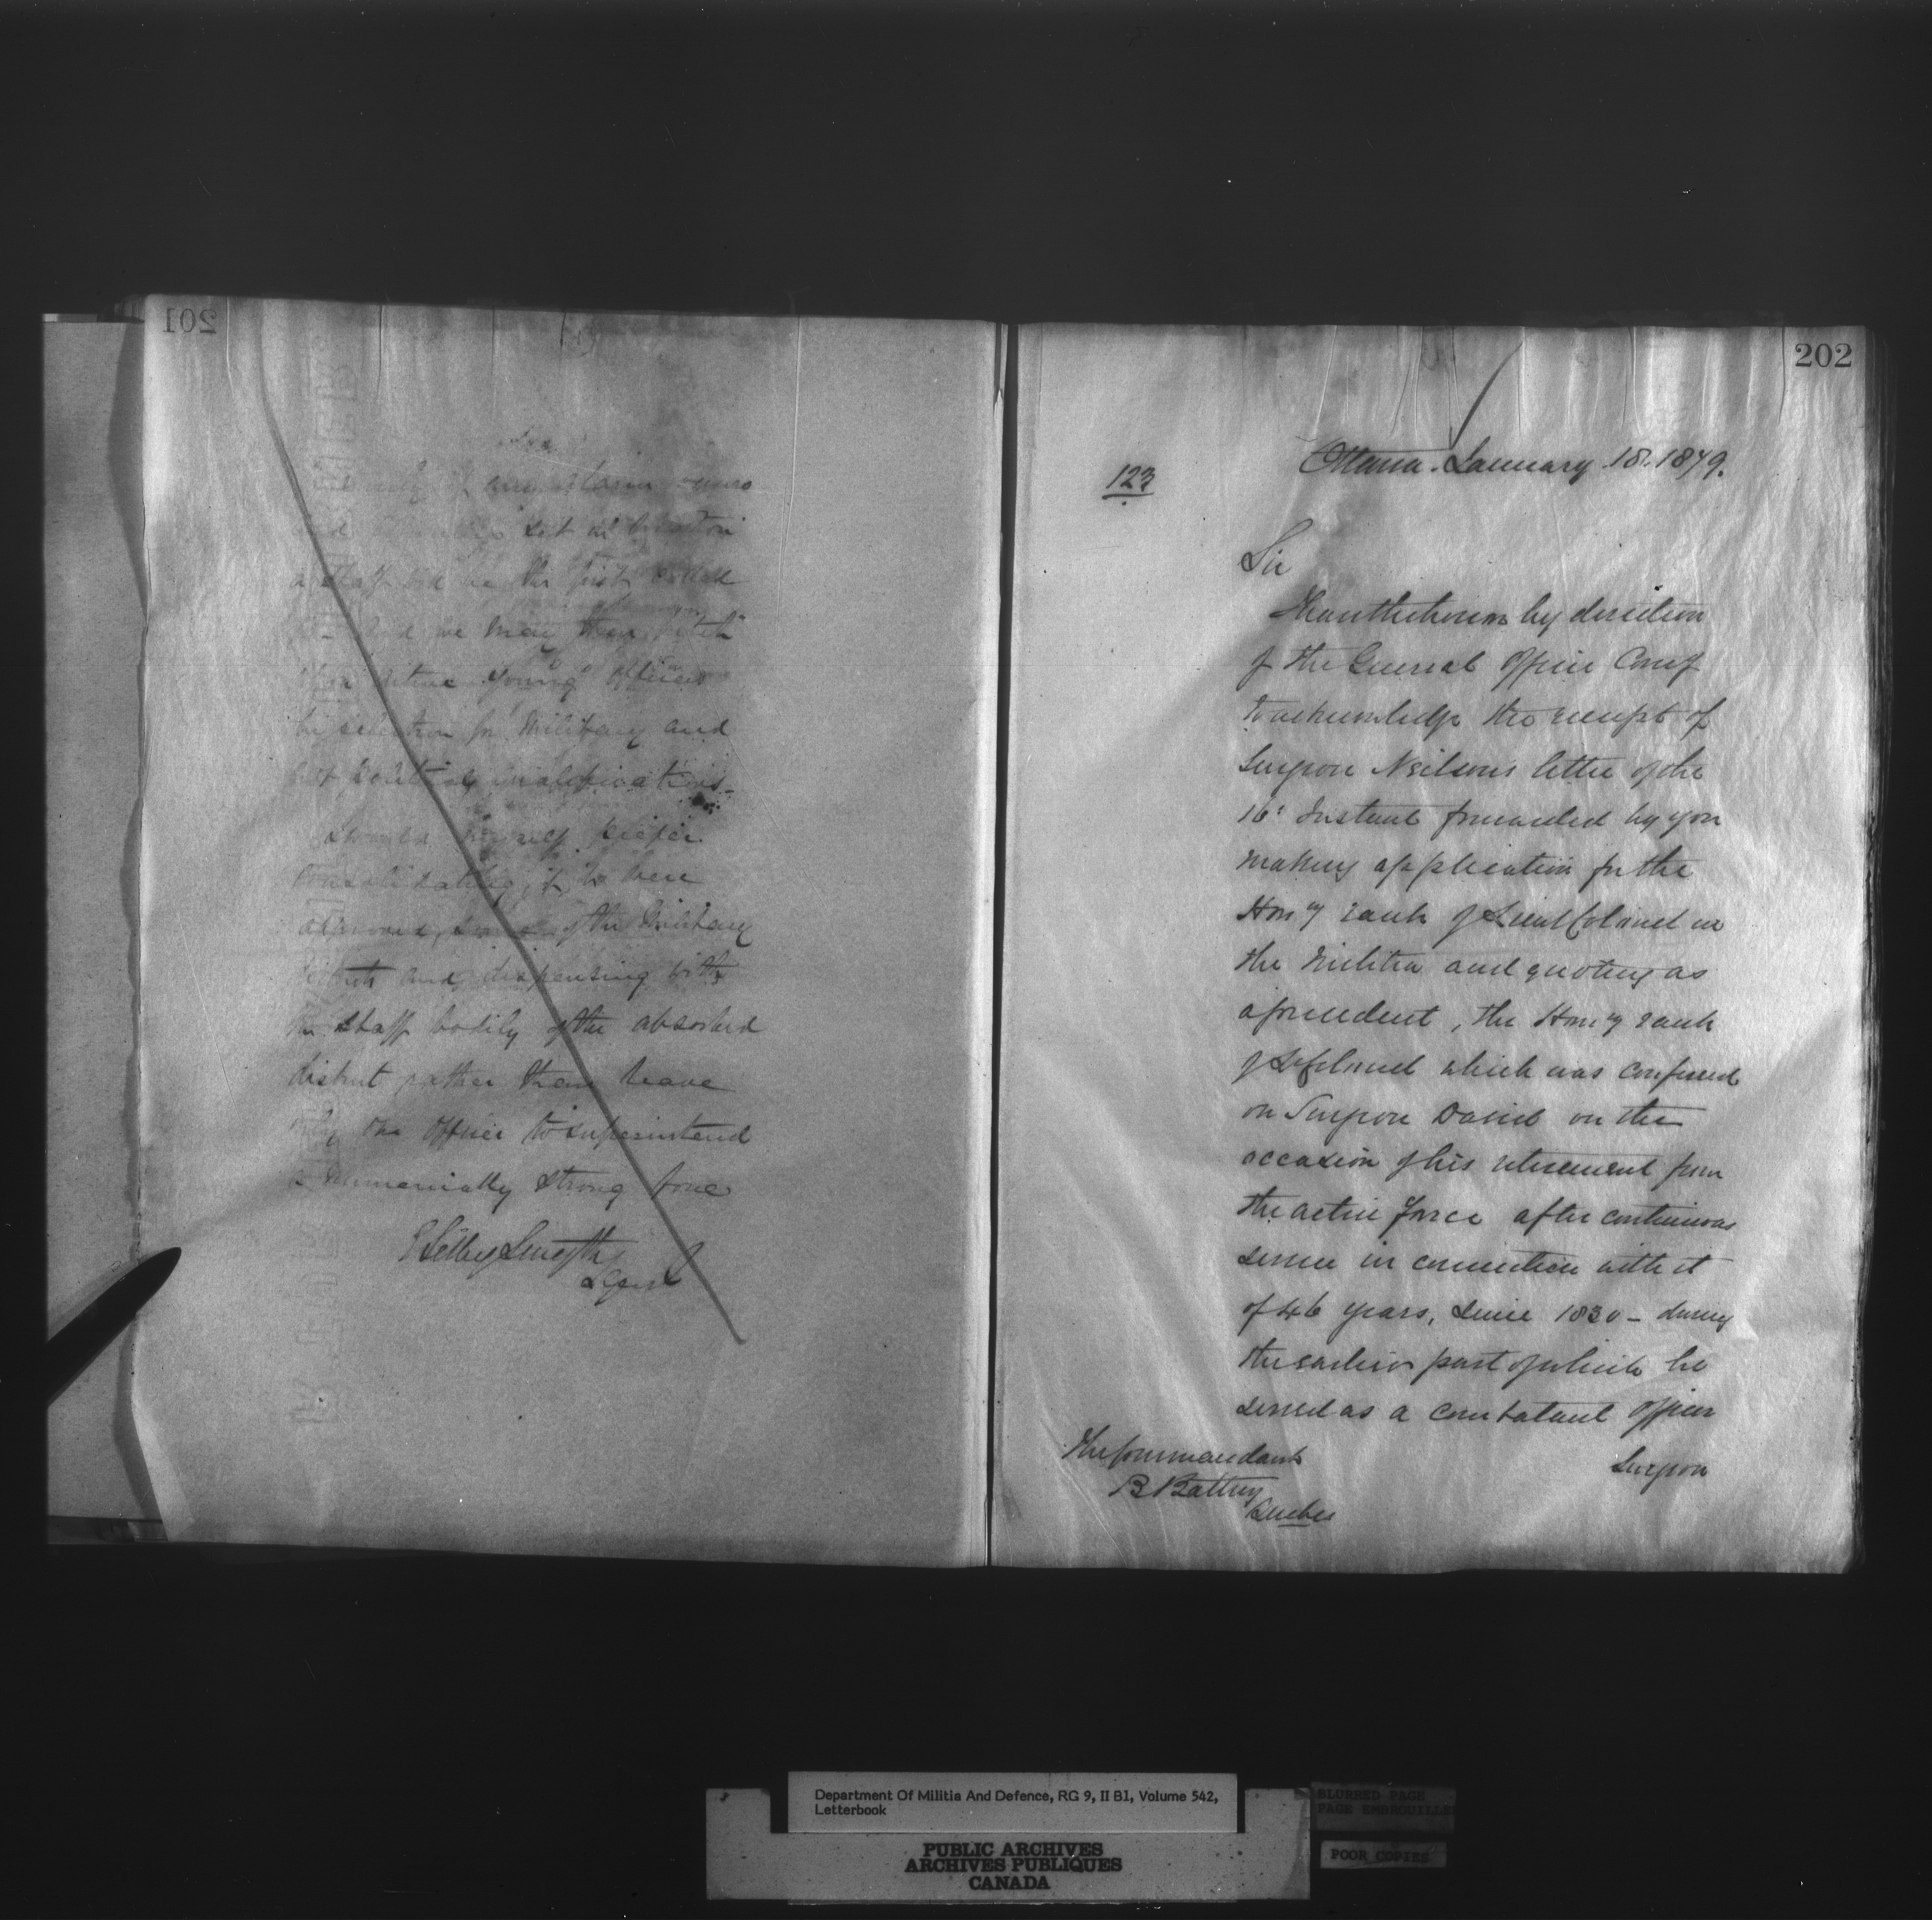 201
set in
a staff
the first
and we may then
active young officers
by selection for Military and
not political qualifications
myself prefer
consolidating, if he were
of the Military
and dispensing with
the staff bodily of the absorbed
district rather than leave
only one officer to superintend
a numerically strong force
E Selby Smyth
LGenl
202
Ottawa. January 18. 1879.
123
Sir
I have the honor by direction
of the General Officer Comg
to acknowledge the receipt of
Surgeon Neilson's letter of the
16th Instant forwarded by you
making application for the
Hony rank of Lieut Colonel in
the Militia and quoting as
a precedent, the Hony rank
of Lt Colonel which was conferred
on Surgeon David on the
occasion of his retirement from
the active force after continuous
service in connection with it
of 46 years, since 1830 - during
the earlier part of which he
served as a combatant officer
Surgeon
The Commandant
B Battery
Quebec
Department Of Militia And Defence, RG 9, II B1, Volume 542,
Letterbook
BLURRED PAGE
PAGE EMBROUILLEE
PUBLIC ARCHIVES
ARCHIVES PUBLIQUES
CANADA
POOR COPIES